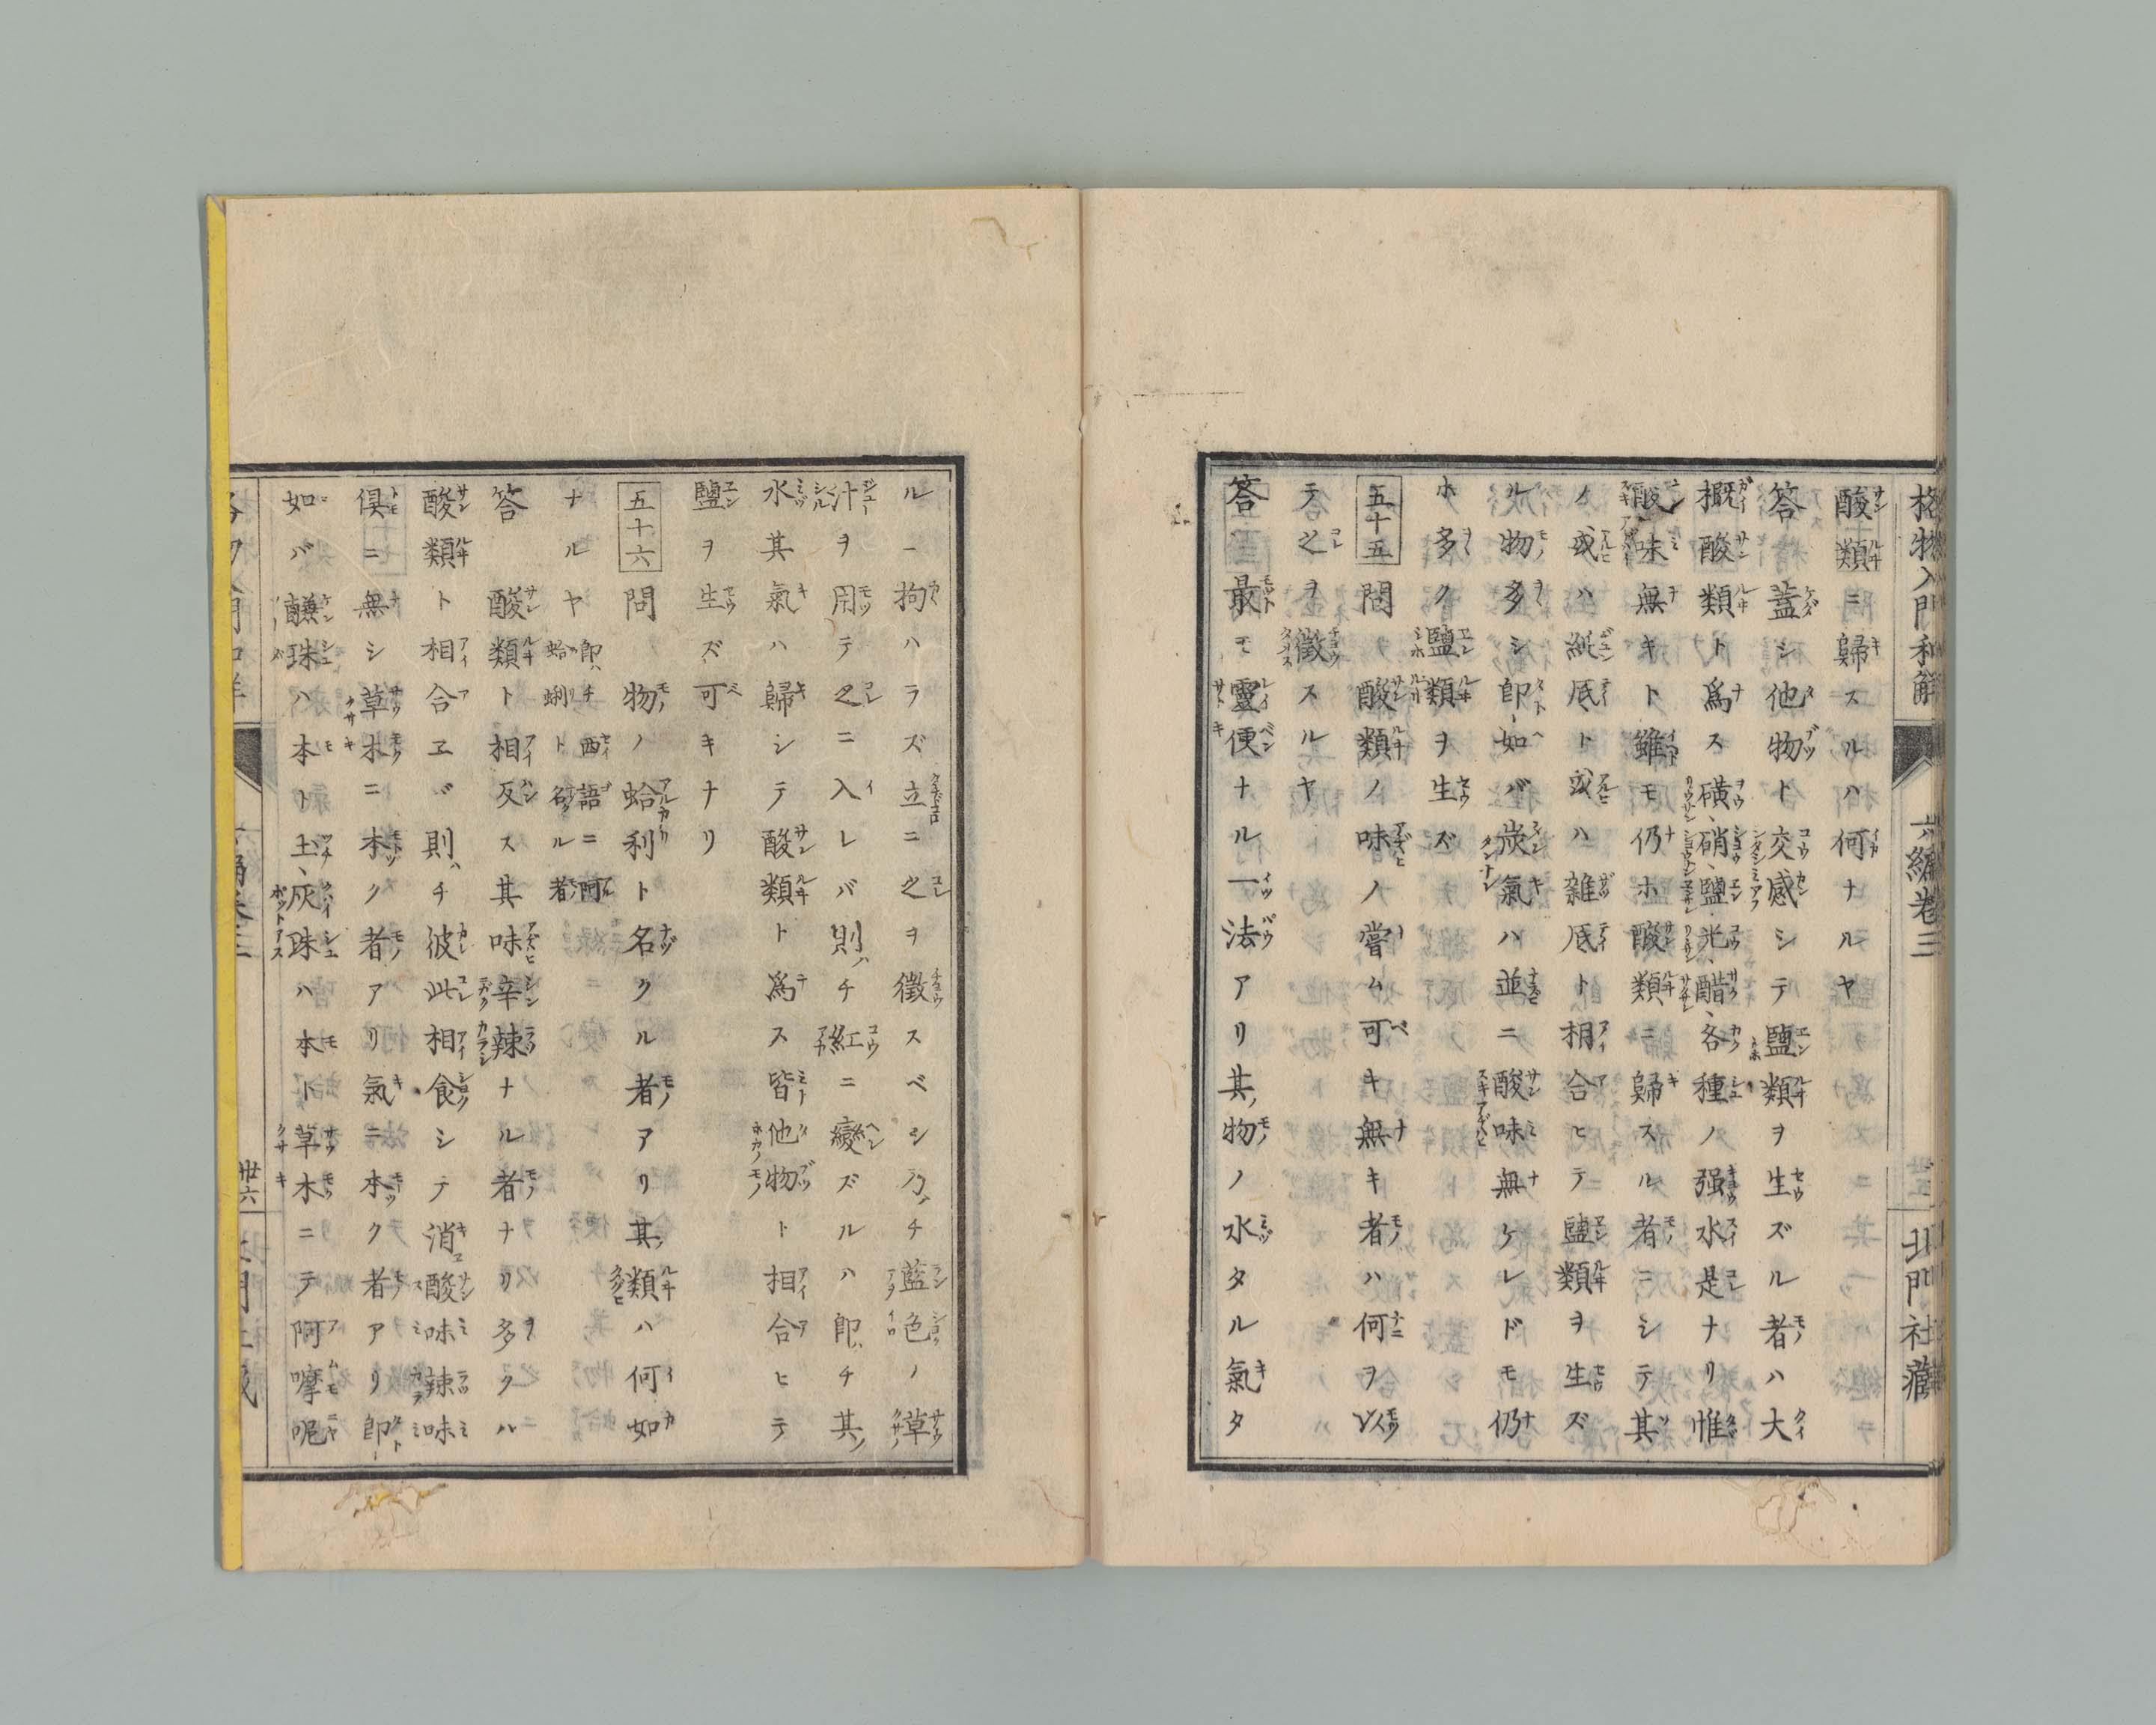 格物入門和解 六編卷三 北門社藏
酸類ニ歸スルハ何ナルヤ
答 蓋シ他物ト交感シテ鹽類ヲ生ズル者ハ大
概酸類ト爲ス磺、硝、鹽、光、醋、各種ノ强水是ナリ惟
酸味無キト雖モ仍ホ酸類ニ歸スル者ニシテ其
ノ或ハ純底ト或ハ雜底ト相合ヒテ鹽類ヲ生ズ
ル物多シ即如バ炭氣ハ並ニ酸味無ケレドモ仍
ホ多ク鹽類ヲ生ズ
五十五 問 酸類ノ味ノ嘗ム可キ無キ者ハ何ヲ以
テ之ヲ徵スルヤ
答 最モ靈便ナル一法アリ其物ノ水タル氣タ
ルー拘ハラズ立ニ之ヲ徵スベシ乃チ藍色ノ草
汁ヲ用テ之ニ入レバ則チ紅ニ變ズルハ即チ其
水其氣ハ歸シテ酸類ト爲ス皆他物ト相合ヒテ
鹽ヲ生ズ可キナリ
五十六 問 物ノ蛤利ト名クル者アリ其類ハ何如
ナルヤ 即チ西語ニ阿
蛤蜊ト名クル者
答 酸類ト相反ス其味辛辣ナル者ナリ多クハ
酸類ト相合ヱバ則チ彼此相食シテ消酸味辣味
俱ニ無シ草木ニ本ク者アリ氣ニ本ク者アリ即
如バ鹻珠ハ本ト土、灰珠ハ本ト草木ニテ阿嚤呢
卅六